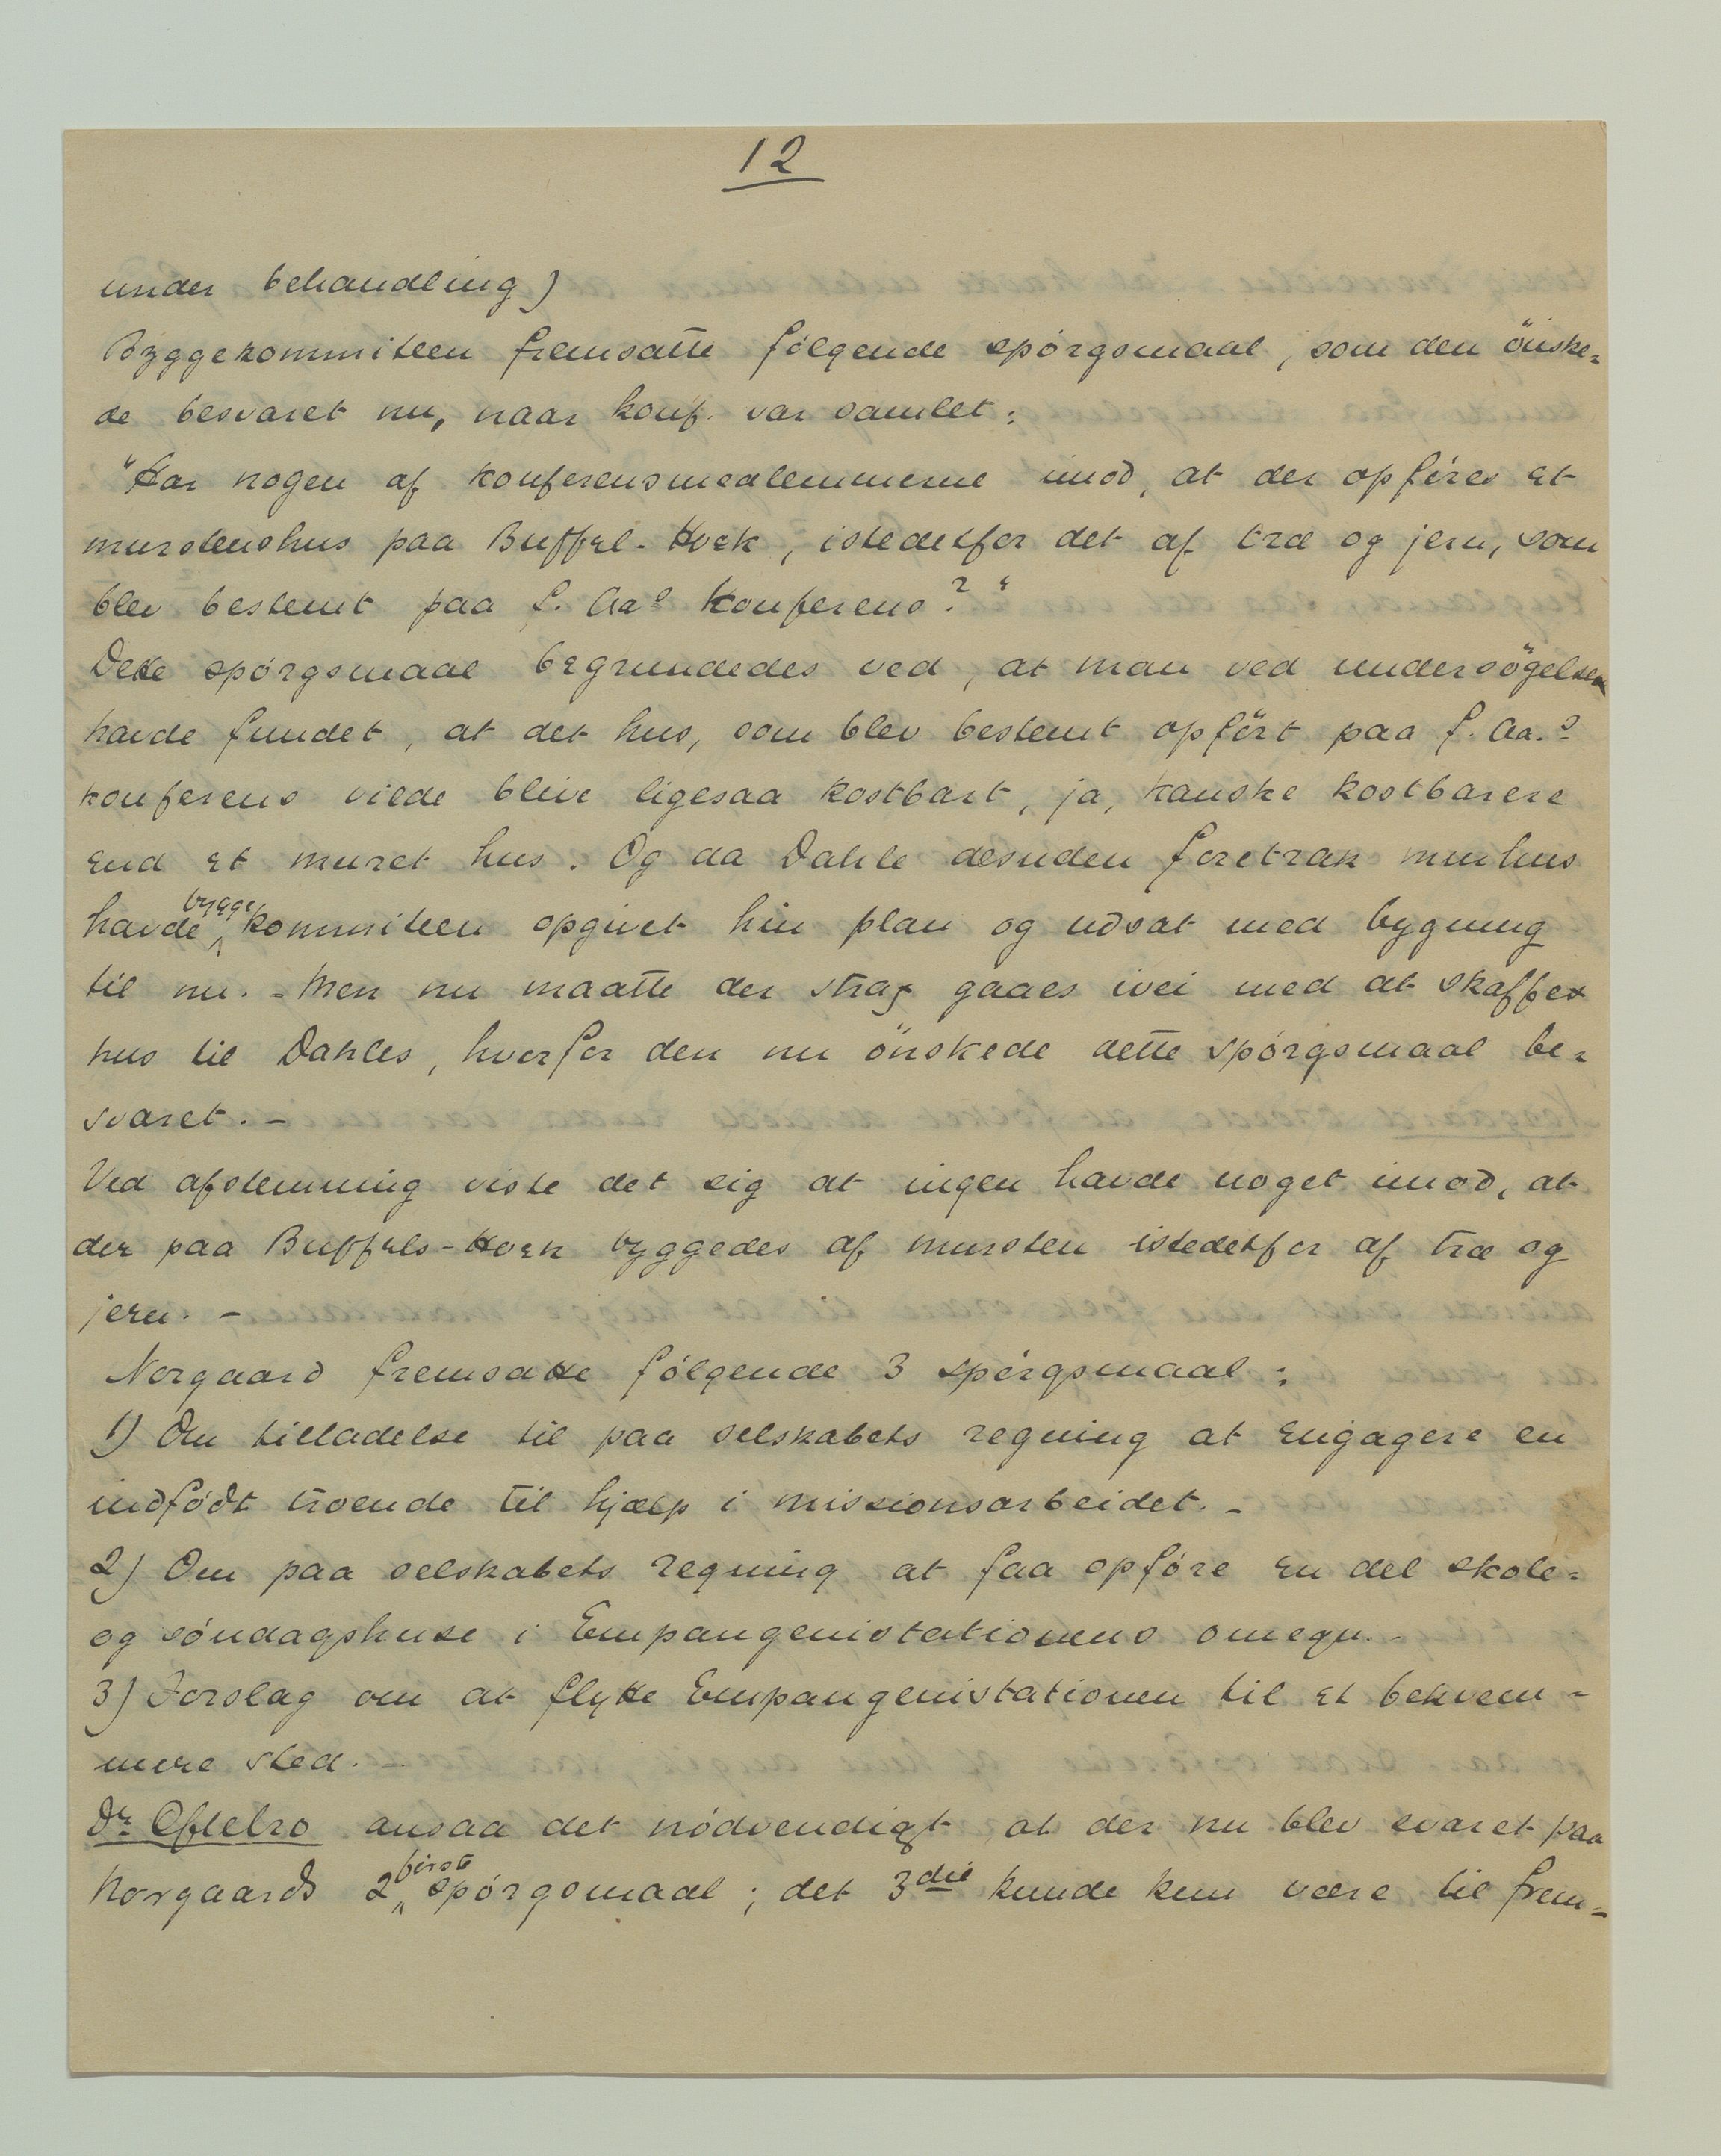 12
under behandling)
Byggekommiteen fremsatte følgende spørgsmaal, som den önske=
de besvaret nu, naar konf. var samlet:
"Har nogen af konferensmedlemmerne imod, at der opføres et
murstenshus paa Buffel-Hoek, istedetfor det af træ og jern, som
blev bestemt paa f. Aas konferens?"
Dette spørgsmaal begrundedes ved, at man ved undersögelsen
havde fundet, at det hus, som blev bestemt opfört paa f. Aa.s
konferens vilde blive ligesaa kostbart, ja, kanske kostbarere
end et muret hus. Og da Dahle desuden foretrak murhus
havde byggekommiteen opgivet hin plan og udsat med bygning
til nu. - Men nu maatte der strax gaaes ivei med at skaffes
hus til Dahles, hvorfor den nu önskede dette spørgsmaal be=
svaret. -
Ved afstemning viste det sig at ingen havde noget imod, at
der paa Buffels-Hoek byggedes af mursten istedetfor af træ og
jern. -
Norgaard fremsatte følgende 3 spørgsmaal:
1) Om tilladelse til paa selskabets regning at engagere en
indfødt troende til hjælp i missionsarbeidet. -
2) Om paa selskabets regning at faa opføre en del skole=
og søndagshuse i Empangenistationens omegn. -
3) Forslag om at flytte Empangenistationen til et bekvem-
mere sted. -
Dr. Oftebro ansaa det nødvendigt at der nu blev svaret paa
Norgaards 2 første spørgsmaal; det 3die kunde kun være til frem=